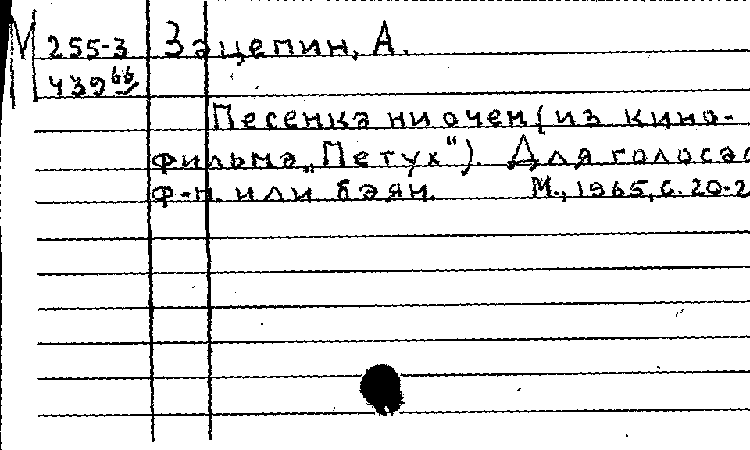 М 255-3 Зацепин, А.
439 66
Песенка ни очем (из кино-
фильма „Петух"). Для голоса с
ф-п. или баян. М., 1965, с. 20-2